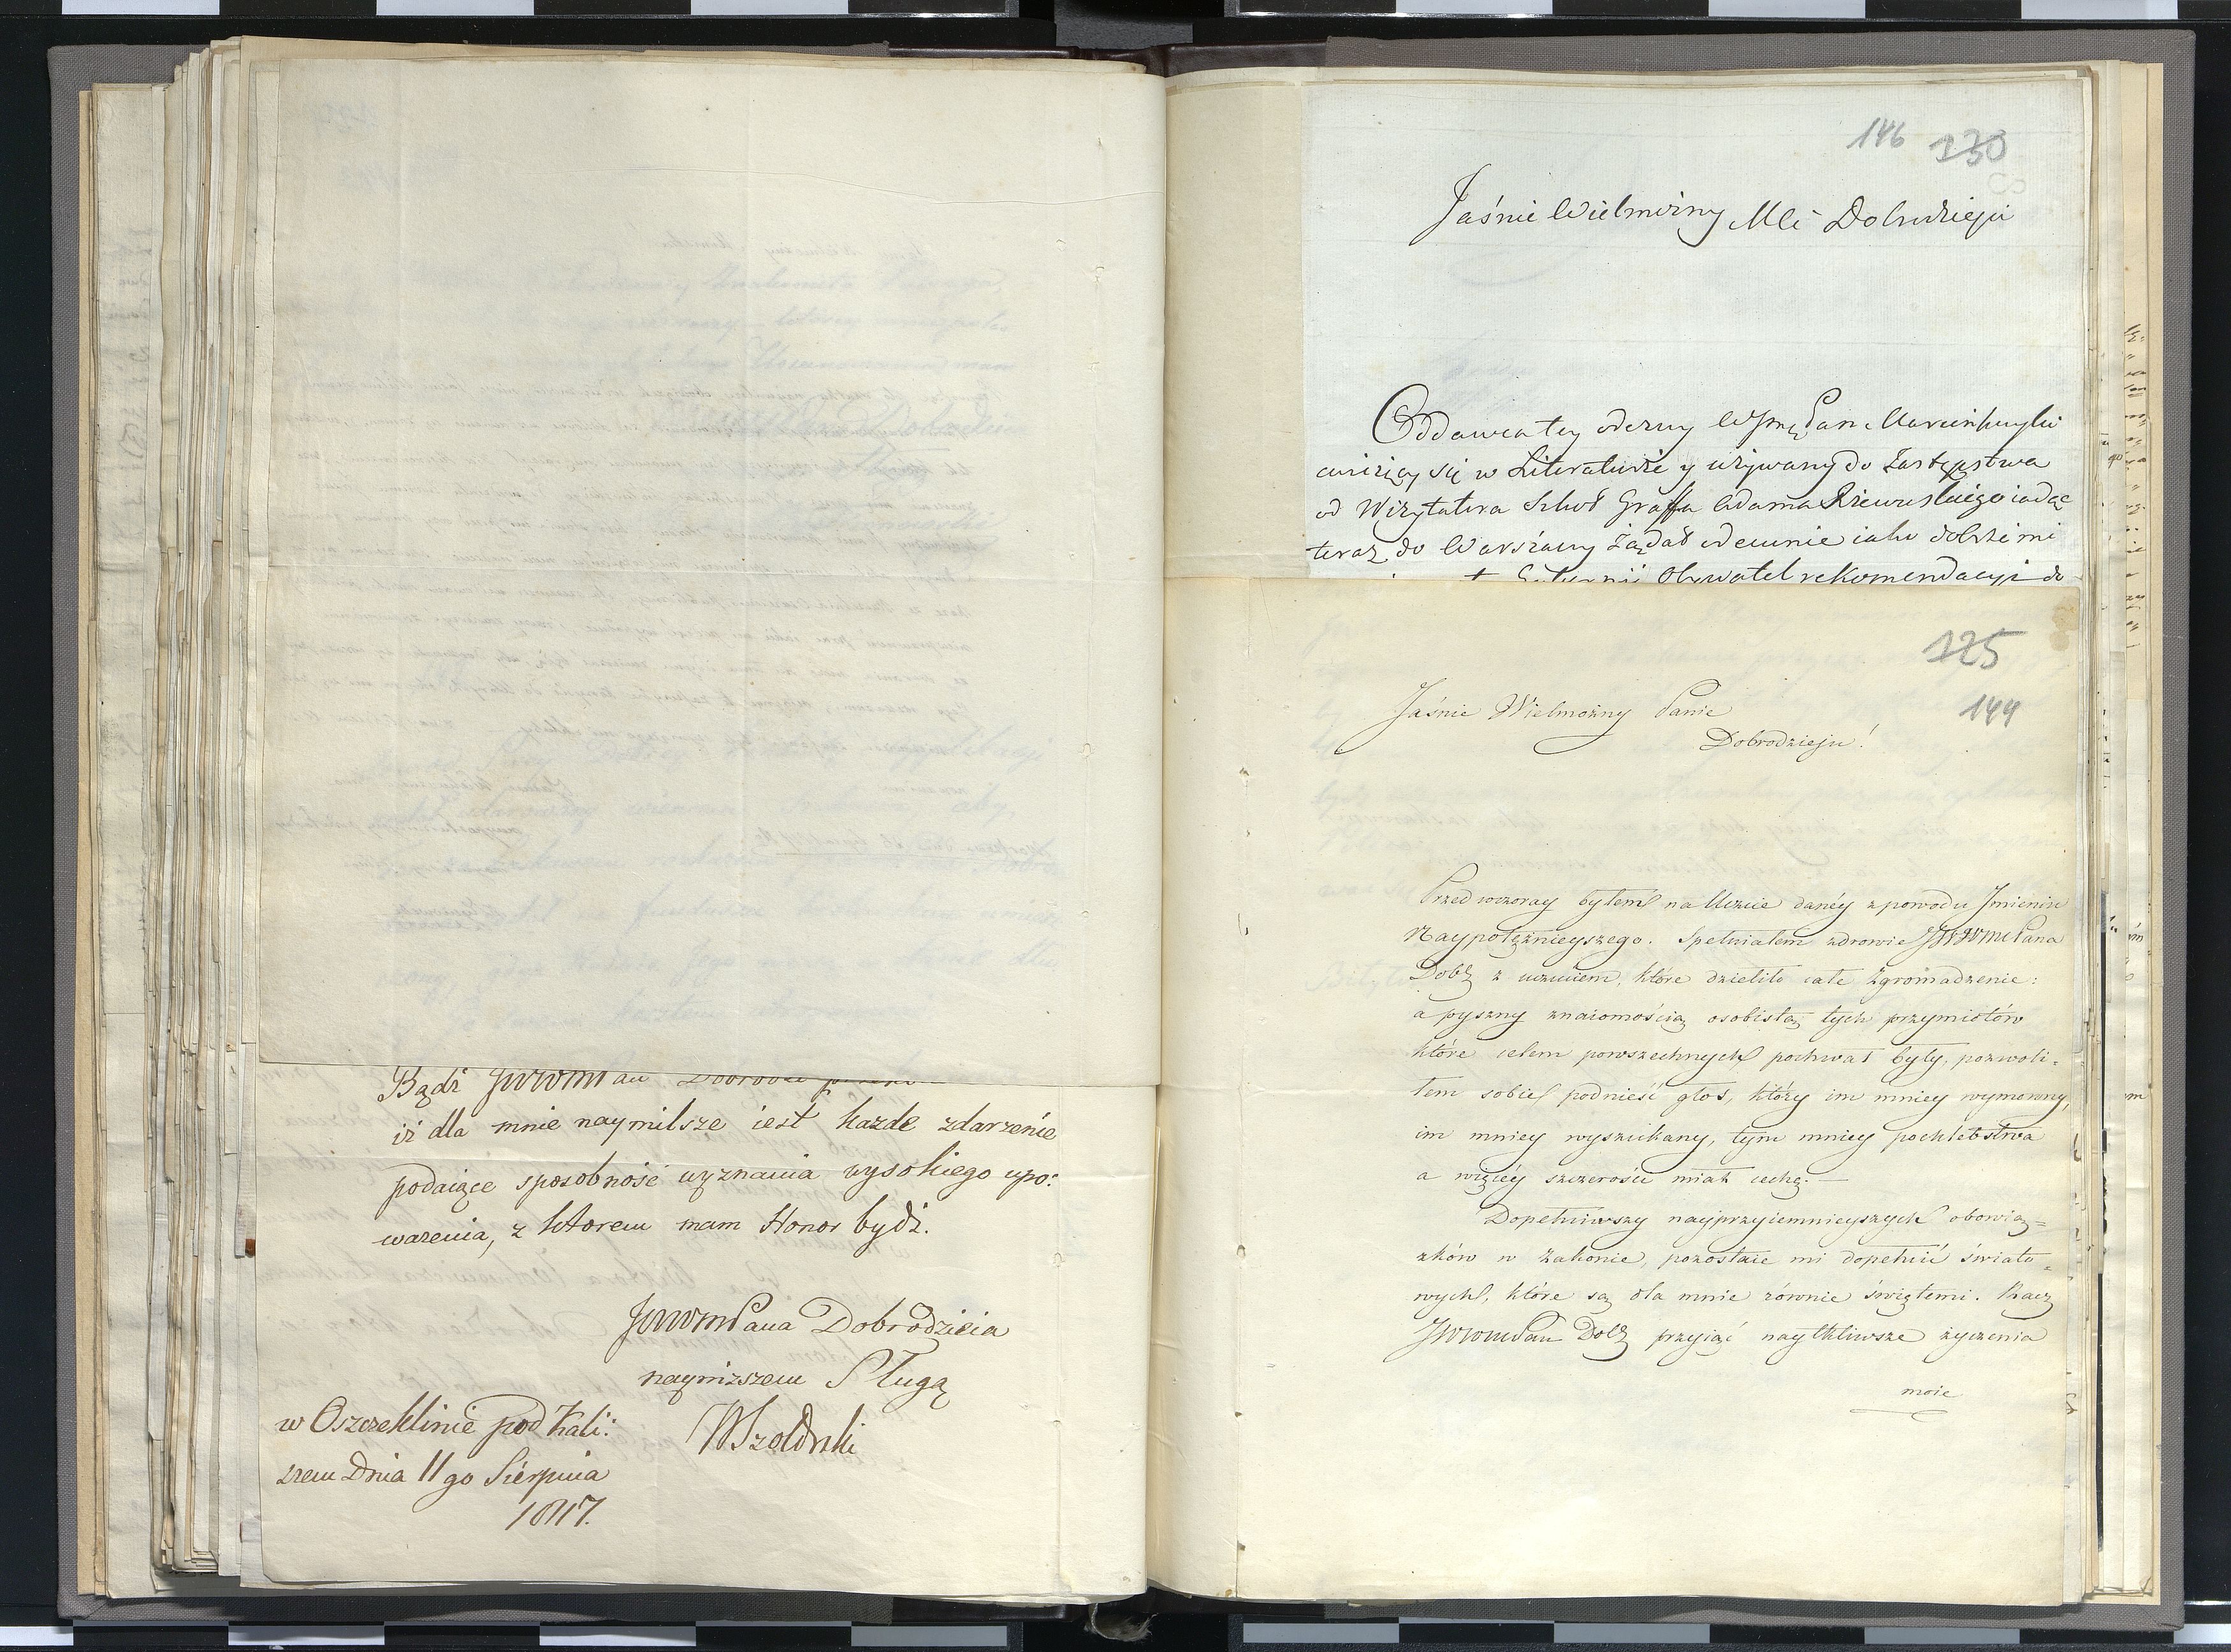 Bądź JWWMPan
iż dla mnie naymilsze iest każde zdarzenie
podaiące sposobność wyznania wysokiego upo:
ważenia, z ktorem mam Honor bydź.
JWWMPana Dobrodzieia
nayniższem Sługą
w Oszczeklinie pod Kali:
szem Dnia 11go Sierpnia
1817.
146 130
Jaśnie Wielmożny Mci Dobrodzieju
Oddawca tey odezwy
ćwiczący się w Literaturze y używany do Zastępstwa
od Wizytatora Szkół Graffa Adama Rzewuskiego iadąc
teraz do Warszawy żądał odemnie iako dobrze mi
Obywatel rekomendacyi do
125
144
Jaśnie Wielmożny Panie
Dobrodzieju!
Przedwczoray byłem na Uczcie danéy z powodu Imienin
Naypotężnieyszego. Spełniałem zdrowie JWWMPana
Dobr z uczuciem, które dzieliło całe Zgromadzenie:
a pyszny znaiomością osobistą tych przymiotów
które celem powszechnych pochwał były, pozwoli=
łem sobie podnieść głos, który im mniey wymowny,
im mniey wyszukany, tym mniey pochlebstwa
a więcéy szczerości miał cechę. —
Dopełniwszy nayprzyiemnieyszych obowią=
zków w Zakonie, pozostaie mi dopełnić świato=
wych, które są dla mnie równie świętemi. Racz
JWWMPan Dobr przyiąć naytkliwsze życzenia
moie